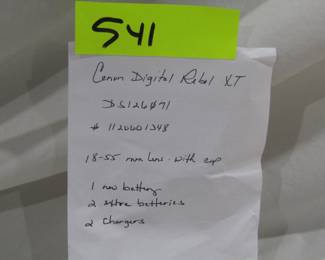 541
Canon Digital Rebel XT
DS126071
# 1120601248
18-55 mm lens - with cap
1 new battery
2 extra batteries
2 Chargers